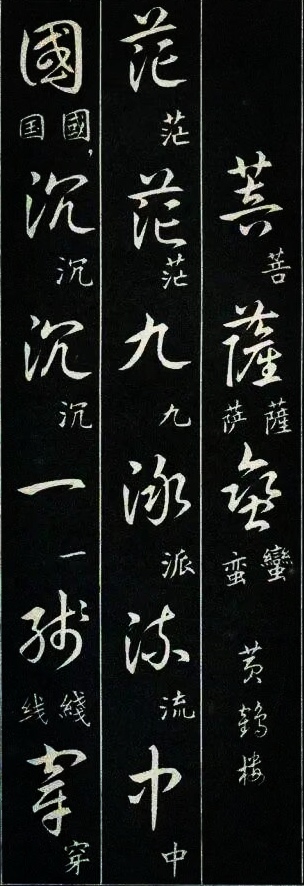 菩薩蠻
菩薩蠻
萨蛮
黄鶴楼
茫茫九派流中
茫茫九派流中
國沉沉一綫穿
國沉沉一綫穿
国线